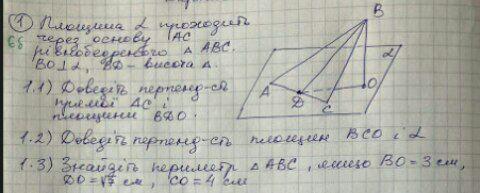 ① Площина α проходить
через основу AC
рівнобедреного △ ABC.
BO⊥α, BD – висота △.
1.1) Доведіть перпенд-сть
прямої AC і
площини BDO.
1.2) Доведіть перпенд-сть площин BCO і α
1.3) Знайдіть периметр △ ABC, якщо BO = 3 см,
DO = √7 см, CO = 4 см
B
α
A
D
O
C